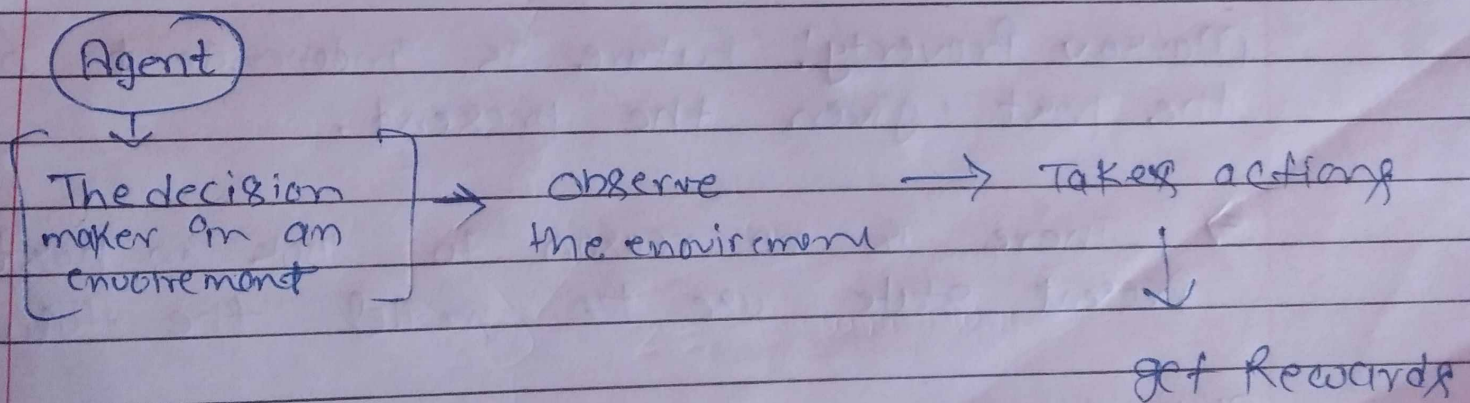 Agent
The decision
maker in an
envoirement
Observe
the enoviremenu
Takes actions
get Rewards